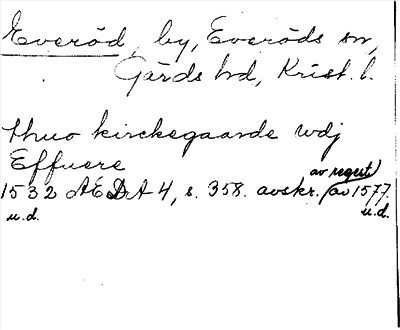 Everöd, by, Everöds sn,
Gärds hd, Krist. l.
thuo kirckegaarde udj
Effuere
av regest)
1532 ÆDA 4, s. 358. avskr. (av 1577.
u.d. u.d.